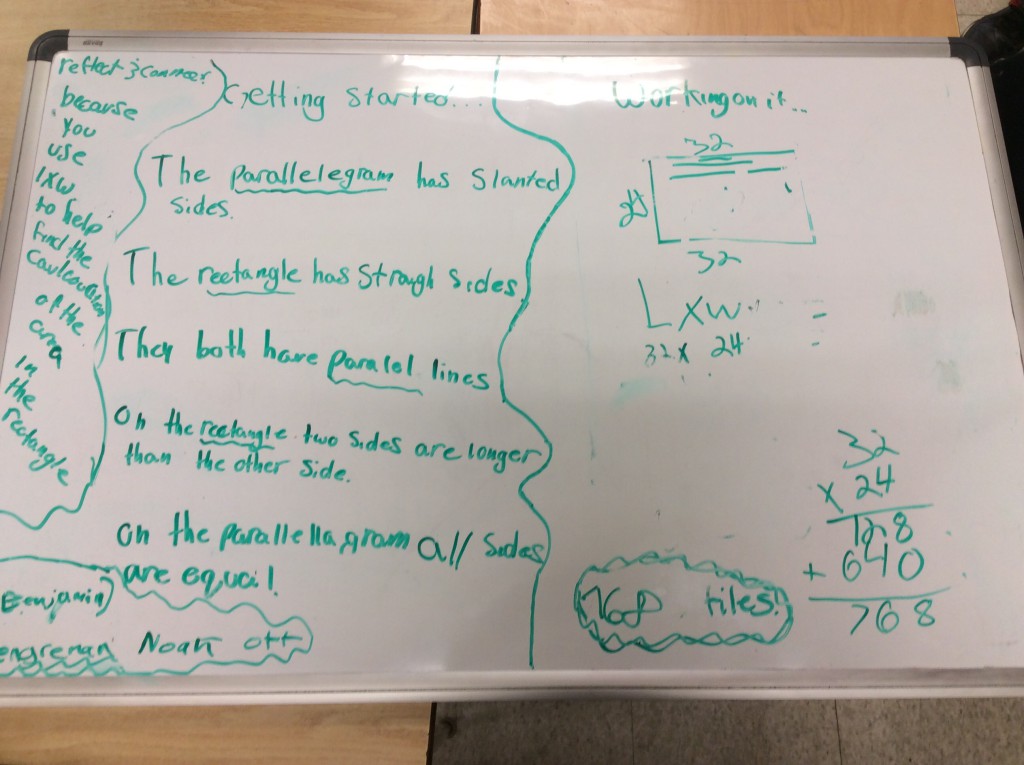 reflect & connect
because
you
use
lxw
to help
find the
of the
area
in
the
rectangle
Getting started...
The parallelegram has slanted
sides.
The rectangle has straugh sides
They both have paralel lines
On the rectangle two sides are longer
than the other side.
on the parallellagram all sides
are equal!
Benjamin
Noah ott
Working on it..
32
24
32
L x w =
32 x 24
32
x 24
128
+ 640
768
768 tiles!